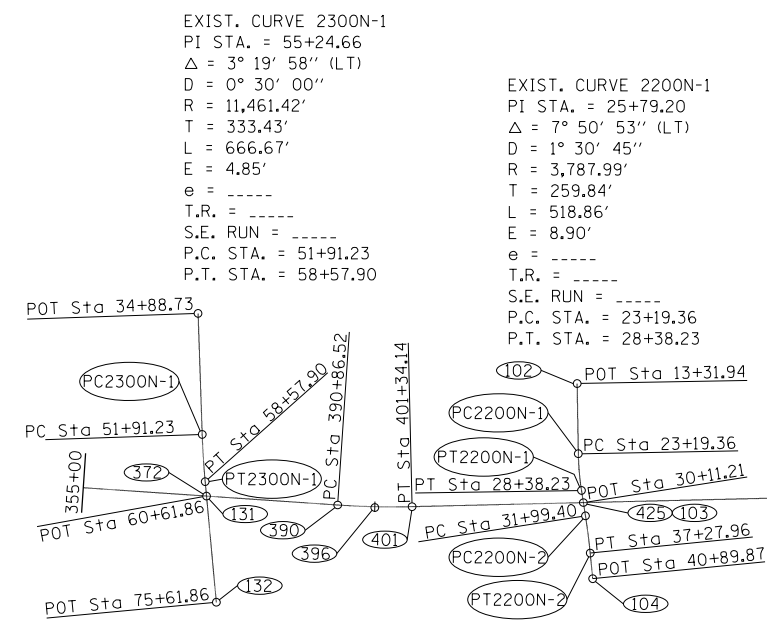 EXIST. CURVE 2300N-1
PI STA. = 55+24.66
Δ = 3° 19' 58'' (LT)
D = 0° 30' 00''
R = 11,461.42'
T = 333.43'
L = 666.67'
E = 4.85'
e = _____
T.R. = _____
S.E. RUN = _____
P.C. STA. = 51+91.23
P.T. STA. = 58+57.90
EXIST. CURVE 2200N-1
PI STA. = 25+79.20
Δ = 7° 50' 53'' (LT)
D = 1° 30' 45''
R = 3,787.99'
T = 259.84'
L = 518.86'
E = 8.90'
e = _____
T.R. = _____
S.E. RUN = _____
P.C. STA. = 23+19.36
P.T. STA. = 28+38.23
POT Sta 34+88.73
PC2300N-1
PC Sta 51+91.23
PT Sta 58+57.90
372
PT2300N-1
355+00
POT Sta 60+61.86
131
POT Sta 75+61.86
132
PC Sta 390+86.52
390
396
PT Sta 401+34.14
401
102
POT Sta 13+31.94
PC2200N-1
PC Sta 23+19.36
PT2200N-1
PT Sta 28+38.23
POT Sta 30+11.21
425
103
PC Sta 31+99.40
PC2200N-2
PT Sta 37+27.96
POT Sta 40+89.87
PT2200N-2
104